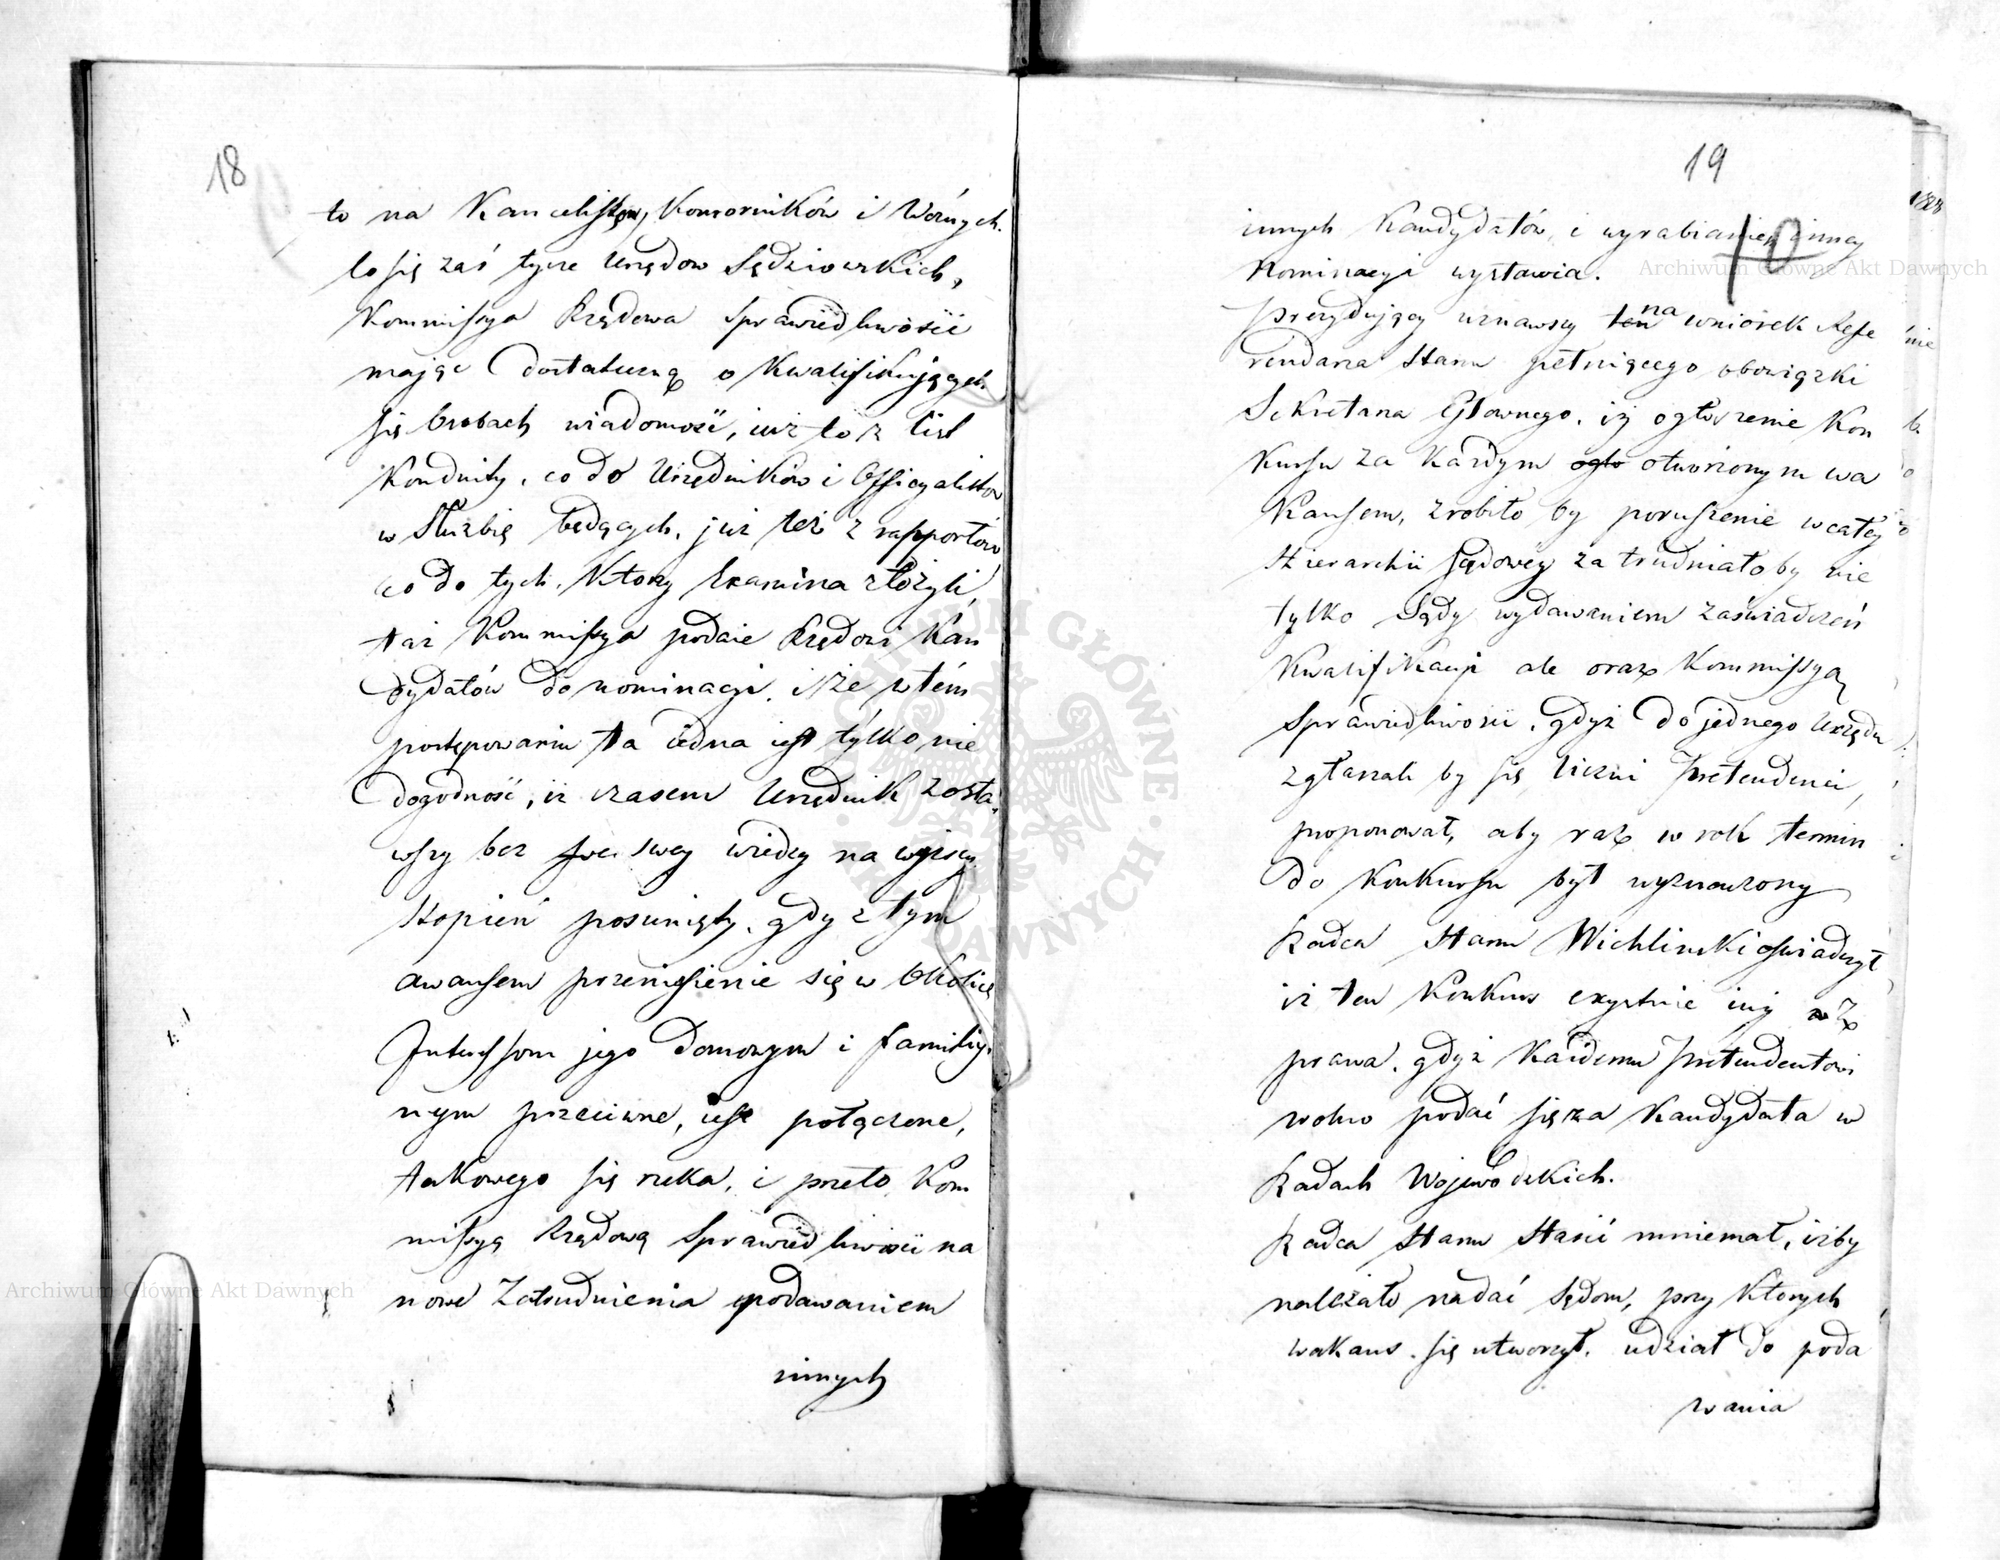 18
to na Kancellistów, Komorników i Woźnych.
Co się zaś tycze Urzędow Sędziowskich,
Kommissya Rządowa Sprawiedliwości
mając dostateczną o kwalifikujących
się Osobach wiadomość, iuż to z List
Konduity, co do Urzędników i Officyalistow
w Służbię będących, już też z rapportów
co do tych, Ktorzy Examina złożyli,
taż Kommissya podaie Rządowi Kan
dydatów do nominacyi, iże w tém
postępowaniu ta iedna iest tylko nie
dogodność, iż czasem Urzędnik zosta
wszy bez swey wiedzy na wyższy
stopień posunięty, gdy z tym
awansem przeniesienie się w Okolicę
Interessom jego domowym i familiy-
nym przeciwne, iest połączone,
takowego się zrzeka, i przeto Kom
missyą Rządową Sprawiedliwości na
nowe Zatrudnienia podawaniem
innych
19
10
innych Kandydatów, i wyrabianiem inney
Nominacyi wystawia.
Prezydujący uznawszy ten na wniosek Refe
rendarza Stanu pełniącego obowiązki
Sekretarza Głownego, iż ogłoszenie Kon
kursu za każdym ogło otworzonym wa
kansem, zrobiło by poruszenie w całey
Hierarchii Sądowéy zatrudniałoby nie
tylko Sądy wydawaniem zaświadczeń
Kwalifikacyi ale oraz Kommissyą
Sprawiedliwości, gdyż do jednego Urzędu
zgłaszali by się liczni Pretendenci,
proponował, aby raz w rok termin
do Konkursu był wyznaczony
Radca Stanu Wichlinski oświadczył
iż ten Konkurs exystuie iuż z
prawa, gdyż każdemu Pretendentowi
wolno podać się za Kandydata w
Radach Wojewodzkich.
Radca Stanu Stasic mniemał, iżby
należało nadać Sądom, przy Ktorych
wakans się utworzył, udział do poda
wania